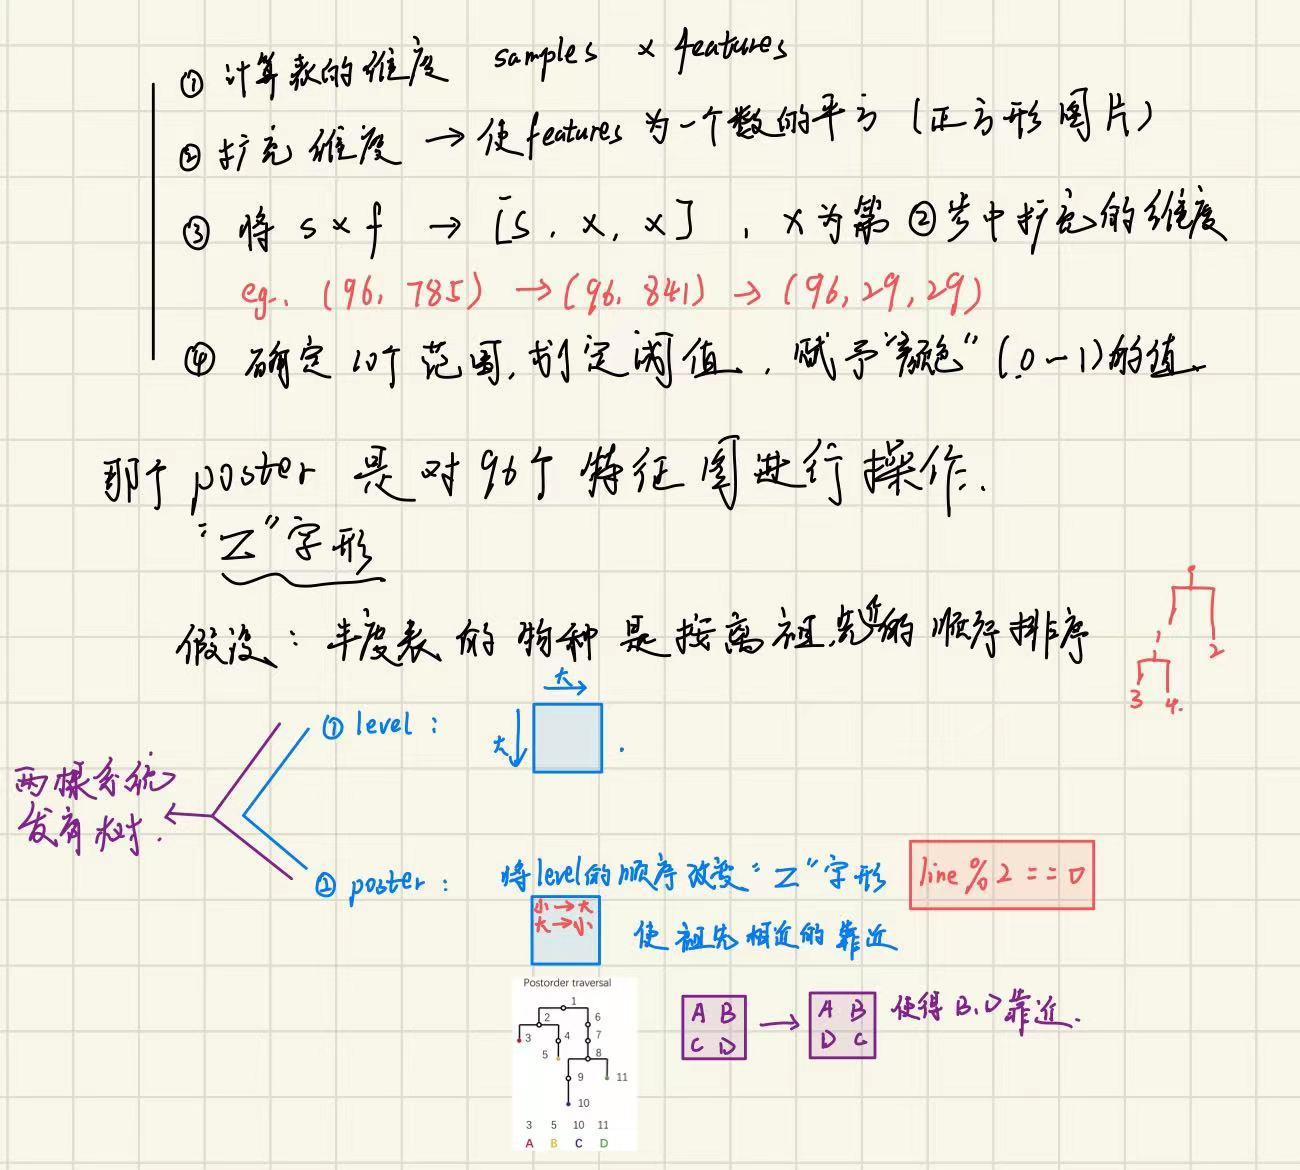 ① 计算表的维度 samples × features
② 扩充维度 → 使features 为一个数的平方 (正方形图片)
③ 将 s × f → [s, x, x] , x为第②步中扩充的维度
eg. (96, 785) → (96, 841) → (96, 29, 29)
④ 确定10个范围, 划定阈值, 赋予"颜色" (0-1)的值.
那个 poster 是对96个特征图进行操作.
"Z"字形
假设: 丰度表的物种是按离祖先近的顺序排序
1
2
3 4.
大→
① level :
大↓
.
两棵系统
发育树.
② poster : 将level的顺序改变"Z"字形 line % 2 == 0
小→大
大→小
使祖先相近的靠近
Postorder traversal
1
2 6
3 4 7
5 8
9 11
10
3 5 10 11
A B C D
A B → A B 使得B.D靠近.
C D D C